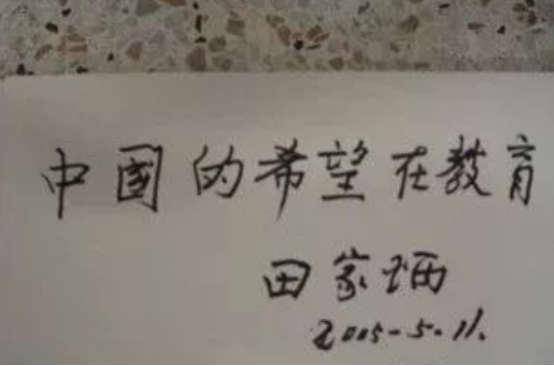 中国的希望在教育
田家炳
2005-5.11.